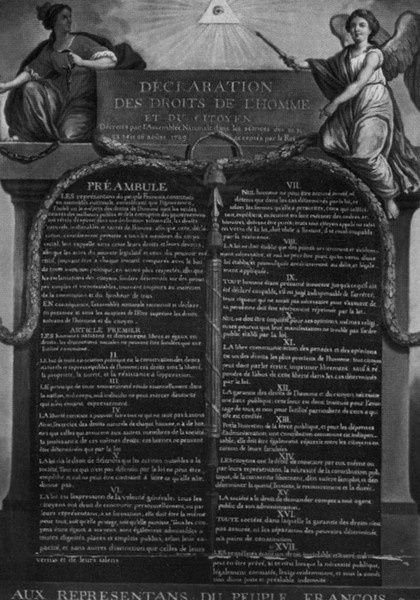 DÉCLARATION
DES DROITS DE L'HOMME
ET DU CITOYEN
Décrétés par l'Assemblée Nationale dans les séances des
acceptés par le Roi
PRÉAMBULE
LES représentans du peuple Francois constitués
en assemblée nationale, considérant que l'ignorance
l'oubli ou le mépris des droits de l'homme sont les seules
causes des malheurs publics et de la corruption des gouvernemens
ont résolu d'exposer dans une déclaration solemnelle, les droits
naturels, inaliénables et sacrés de l'homme: afin que cette
constamment présente à tous les membres du corps
social, leur rappelle sans cesse leurs droits et leurs devoirs
afin que les actes du pouvoir législatif et ceux du pouvoir exé-
cutif, pouvant être à chaque instant comparés avec le but
de toute institution politique, en soient plus respectés; afin que
les réclamations des citoyens, fondées désormais sur des princi-
pes simples et incontestables, tournent toujours au maintien
de la constitution et du bonheur de tous.
EN conséquence, l'assemblée nationale reconnoit et déclare
en présence et sous les auspices de l'Être suprême les droits
suivans de l'homme et du citoyen
ARTICLE PREMIER
LES hommes naissent et demeurent libres et égaux en
droits, les distinctions sociales ne peuvent être fondées que sur
l'utilité commune.
II
LE but de toute association politique est la conservation des droits
naturels et imprescriptibles de l'homme; ces droits sont la liberté
la propriété, la sureté, et la résistance à l'oppression.
III
LE principe de toute souveraineté réside essentiellement dans
la nation, nul corps, nul individu ne peut exercer d'autorité
qui n'en émane expressément.
IV
LA liberté consiste à pouvoir faire tout ce qui ne nuit pas à autrui
Ainsi, l'exercice des droits naturels de chaque homme, n'a de bor-
nes que celles qui assurent aux autres membres de la société
la jouissance de ces mêmes droits; ces bornes ne peuvent
être déterminées que par la loi
V
LA loi n'a le droit de défendre que les actions nuisibles à la
société. Tout ce qui n'est pas défendu par la loi ne peut être
empêché, et nul ne peut être contraint à faire ce qu'elle n'or-
donne pas.
VI
LA loi est l'expression de la volonté générale; tous les
citoyens ont droit de concourir personnellement, ou par
leurs représentans, à sa formation; elle doit être la même
pour tous, soit qu'elle protege, soit qu'elle punisse. Tous les cito-
yens étant égaux à ses yeux, sont également admissibles à
toutes dignités, places et emplois publics, selon leur ca-
pacité, et sans autres distinctions que celles de leurs
vertus et de leurs talens
VII
NUL homme ne peut être accusé, arrêté ni
détenu que dans les cas déterminés par la loi, et
selon les formes qu'elle a prescrites, ceux qui sollici-
tent, expédient, exécutent ou font exécuter des ordres ar-
bitraires, doivent être punis; mais tout citoyen appelé ou saisi
en vertu de la loi, doit obéir à l'instant, il se rend coupable
par la résistance.
VIII
LA loi ne doit établir que des peines strictement et évidem-
ment nécessaires, et nul ne peut être puni qu'en vertu d'une
loi établie et promulguée antérieurement au délit, et légale-
ment appliquée.
IX
TOUT homme étant présumé innocent jusqu'à ce qu'il ait
été déclaré coupable, s'il est jugé indispensable de l'arrêter,
toute rigueur qui ne seroit pas nécessaire pour s'assurer de
sa personne doit être sévèrement réprimée par la loi.
NUL ne doit être inquiété pour ses opinions, mêmes religi-
euses pourvu que leur manifestation ne trouble pas l'ordre
public établi par la loi.
XI
LA libre communication des pensées et des opinions
est un des droits les plus précieux de l'homme: tout citoyen
peut donc parler, écrire, imprimer librement: sauf à ré-
pondre de l'abus de cette liberté dans les cas déterminés
par la loi.
XII
LA garantie des droits de l'homme et du citoyen nécessite
une force publique: cette force est donc instituée pour l'avan-
tage de tous, et non pour l'utilité particuliere de ceux à qui
elle est confiée.
XIII
POUR l'entretien de la force publique, et pour les dépenses
d'administration, une contribution commune est indispen-
sable; elle doit être également répartie entre les citoyens en
raison de leurs facultés.
XIV
LES citoyens ont le droit de constater par eux même ou
par leurs représentans, la nécessité de la contribution publi-
que, de la consentir librement, d'en suivre l'emploi, et d'en
déterminer la quotité, l'assiette, le recouvrement et la durée.
XV
LA société a le droit de demander compte à tout agent
public de son administration.
XVI
TOUTE société dans laquelle la garantie des droits n'est
pas assurée, ni la séparation des pouvoirs déterminée,
n'a point de constitution
XVII
LES propriétés étant un droit inviolable et sacré nul
ne peut en être privé, si ce n'est lorsque la nécessité publique,
légalement constatée, l'exige évidemment, et sous la condi-
tion d'une juste et préalable indemnité
AUX REPRESENTANS DU PEUPLE FRANCOIS